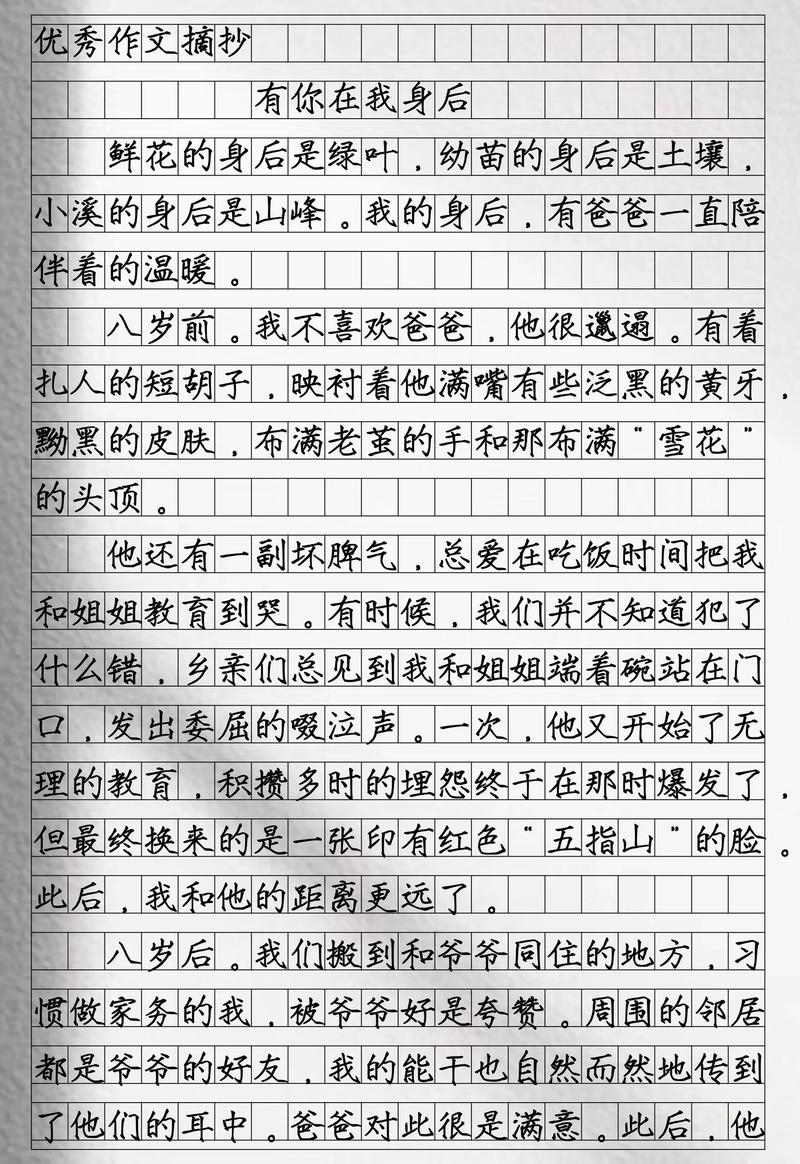 优秀作文摘抄
有你在我身后
鲜花的身后是绿叶，幼苗的身后是土壤，
小溪的身后是山峰。我的身后，有爸爸一直陪
伴着的温暖。
八岁前。我不喜欢爸爸，他很邋遢。有着
扎人的短胡子，映衬着他满嘴有些泛黑的黄牙，
黝黑的皮肤，布满老茧的手和那布满“雪花”
的头顶。
他还有一副坏脾气，总爱在吃饭时间把我
和姐姐教育到哭。有时候，我们并不知道犯了
什么错，乡亲们总见到我和姐姐端着碗站在门
口，发出委屈的啜泣声。一次，他又开始了无
理的教育，积攒多时的埋怨终于在那时爆发了，
但最终换来的是一张印有红色“五指山”的脸。
此后，我和他的距离更远了。
八岁后。我们搬到和爷爷同住的地方，习
惯做家务的我，被爷爷好是夸赞。周围的邻居
都是爷爷的好友，我的能干也自然而然地传到
了他们的耳中。爸爸对此很是满意。此后，他